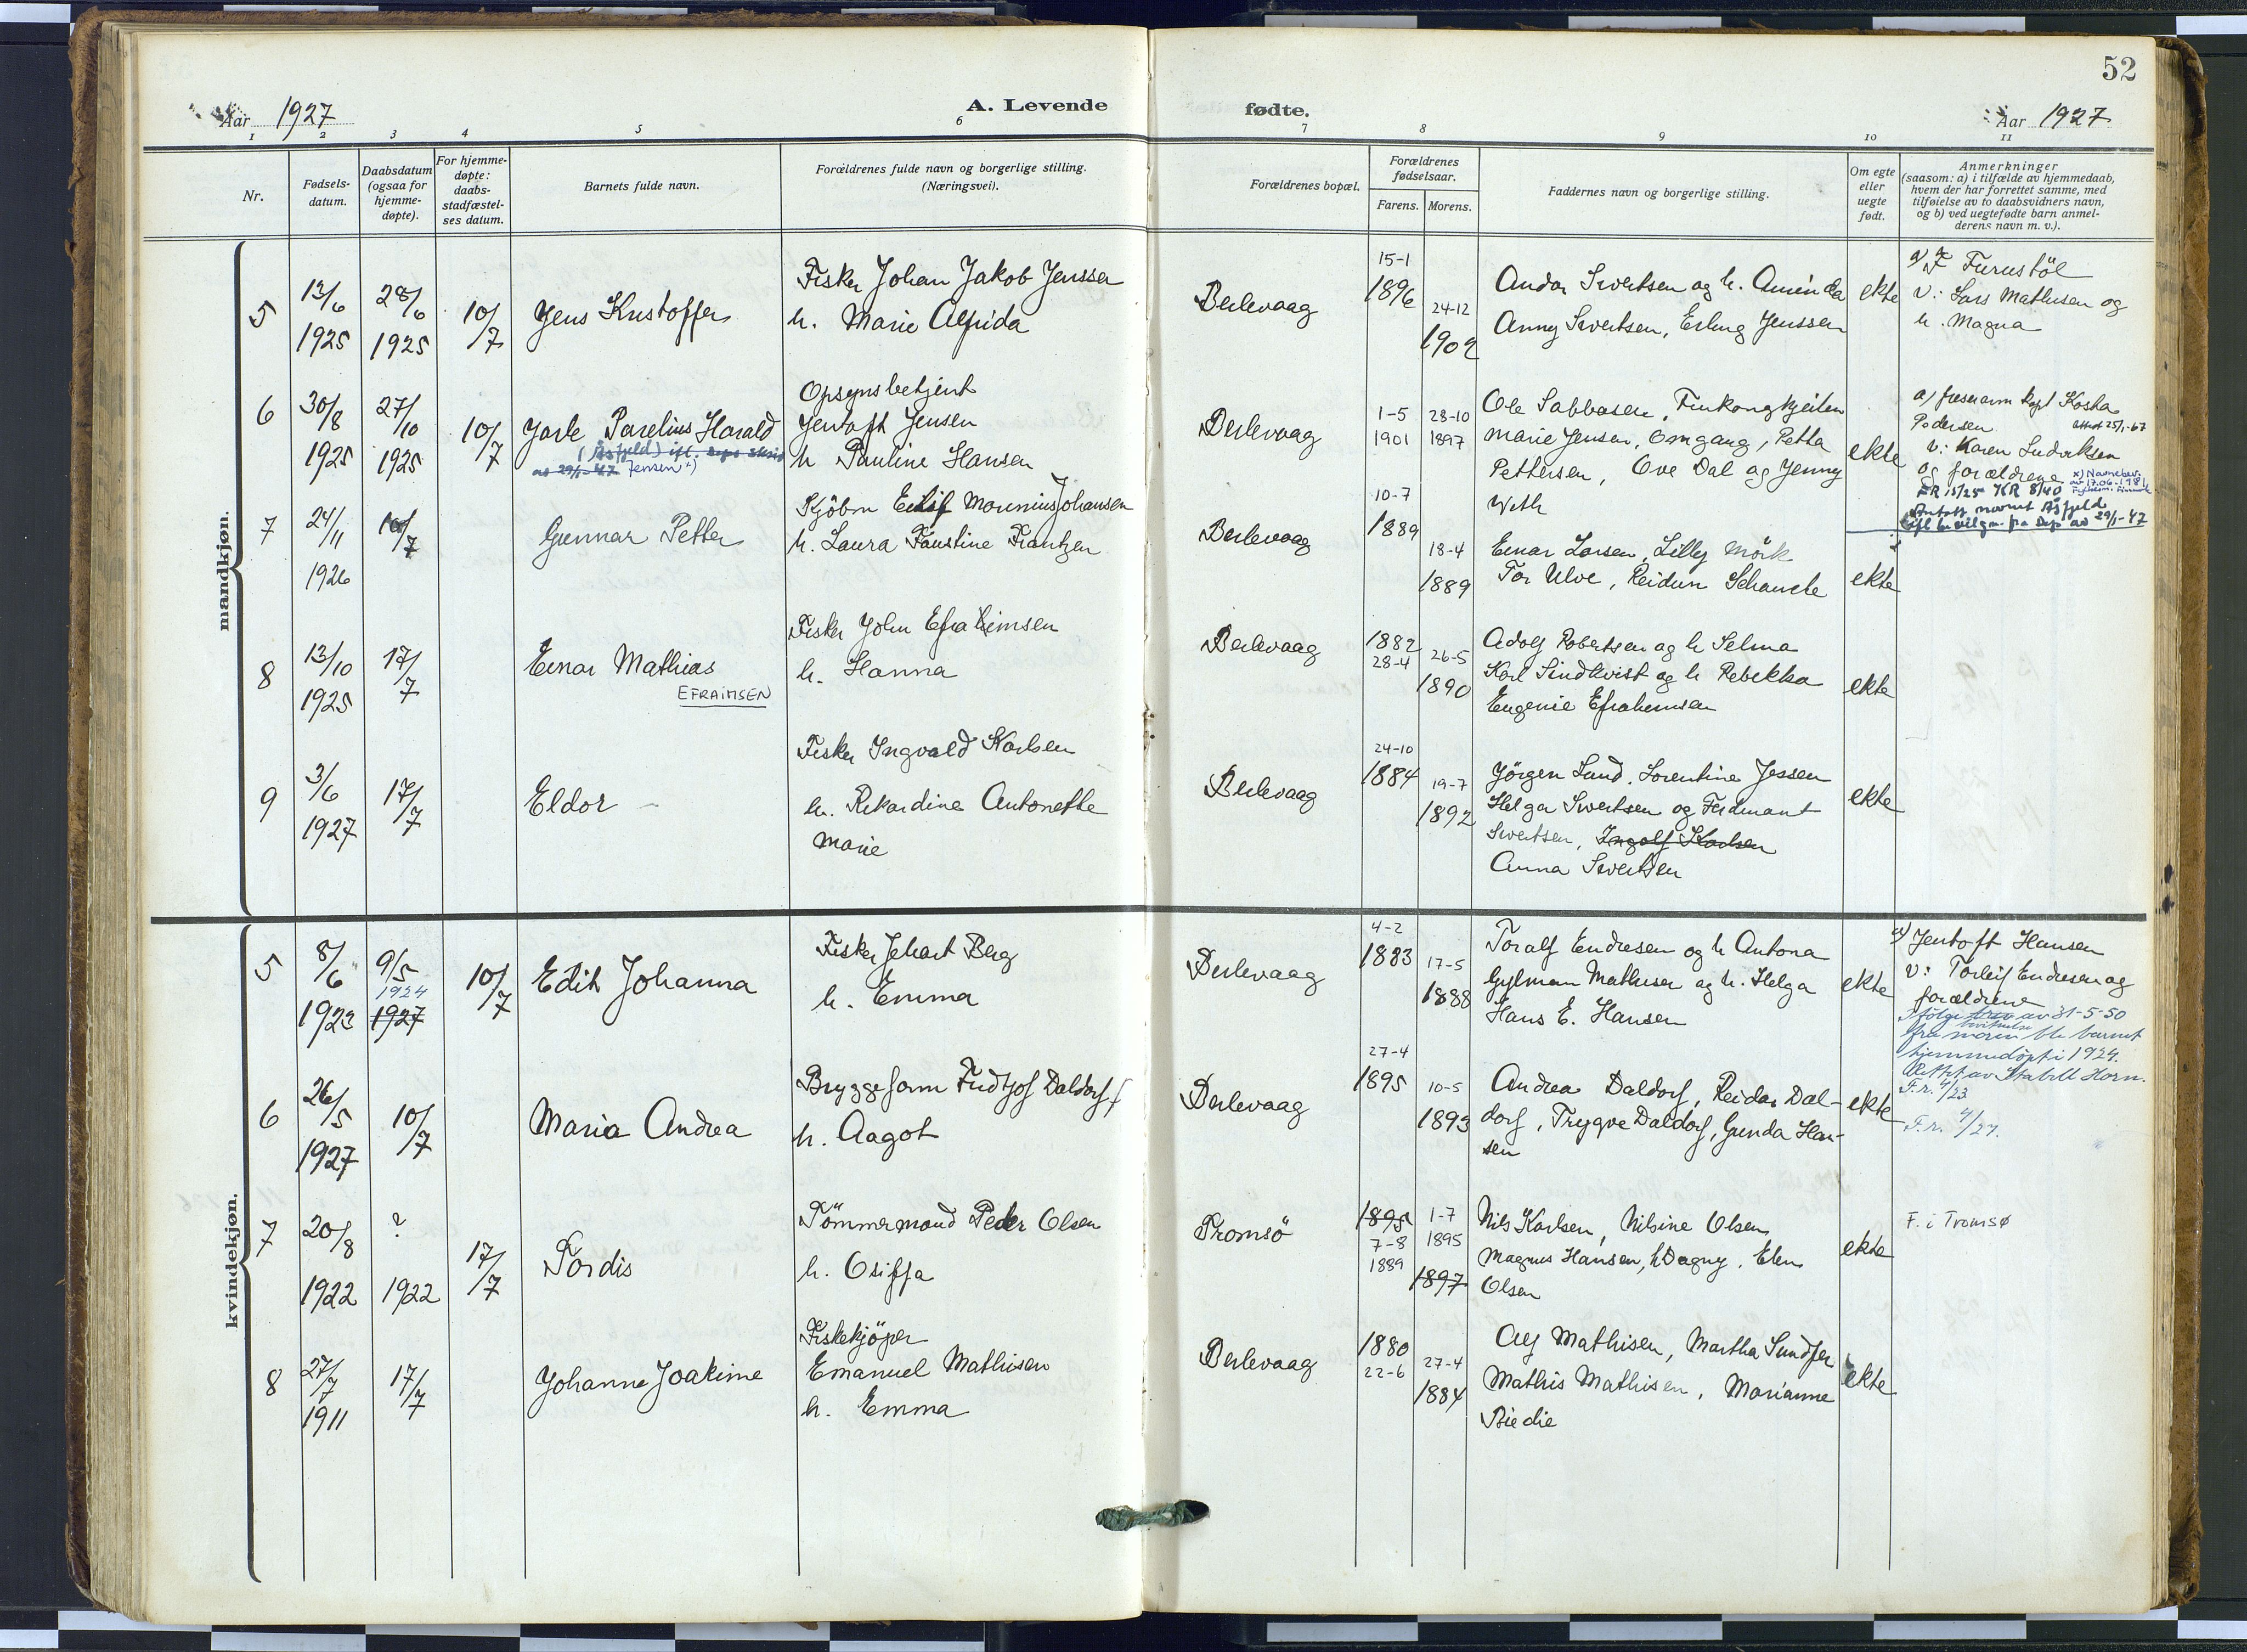 52
Aar 1927
A. Levende fødte.
Aar 1927
1 2 3 4 5 6 7 8 9 10 11
Nr.
Fødsels-
datum.
Daabsdatum
(ogsaa for
hjemme-
døpte).
For hjemme-
døpte:
daabs-
stadfæstel-
ses datum.
Barnets fulde navn.
Forældrenes fulde navn og borgerlige stilling.
(Næringsvei).
Forældrenes bopæl.
Forældrenes
fødselsaar.
Farens. Morens.
Faddernes navn og borgerlige stilling.
Om egte
eller
uegte
født.
Anmerkninger
(saasom: a) i tilfælde av hjemmedaab,
hvem der har forrettet samme, med
tilføielse av to daabsvidners navn,
og b) ved uegtefødte barn anmel-
derens navn m. v.).
mandkjøn.
5
13/6
1925
28/6
1925
10/7
Jens Kristoffer
Fisker Johan Jakob Jenssen
h. Marie Alfrida
Berlevaag
15-1
1896
24-12
1902
Andor Sivertsen og h. Aminda
Anny Sivertsen, Erling Jenssen
ekte
a) F Furustöl
v: Lars Mathisen og
h. Magna
6
30/8
1925
27/10
1925
10/7
Jarle Parelius Harald
(Åsfjeld) ifl. deps skriv
av 29/1-47 Jensen x)
Opsynsbetjent
Jentoft Jensen
h Pauline Hansen
Berlevaag
1-5
1901
28-10
1897
Ole Sabbasen, Finkongkjeilen
Marie Jensen, Omgang, Petra
Pettersen, Ove Dal og Jenny
With
ekte
Pedersen
v: Karen Ludviksen
og forældrene
x) Navnebev.
av 17.06-1981
FR 15/25 KR 8/40
Antatt navnet Åsfjeld
ifl bevilgn. fra Dep av 29/1-47
7
24/11
1926
10/7
Gunnar Petter
Kjöbm Eilif Mounius Johansen
h. Laura Faustine Frantzen
Berlevaag
10-7
1889
18-4
1889
Einar Larsen, Lilly Mörk
Tor Ulve, Reidun Schanche
ekte
8
13/10
1925
17/7
Einar Mathias
EFRAIMSEN
Fisker John Efraimsen
h. Hanna
Berlevaag
1882
28-4
26-5
1890
Adolf Robertsen og h Selma
Karl Lindkvist og h Rebekka
Eugenie Efraimsen
ekte
9
3/6
1927
17/7
Eldor
Fisker Ingvald Karlsen
h. Rikardine Antonette
Marie
Berlevaag
24-10
1884
19-7
1892
Jörgen Lund, Lorentine Jessen
Helga Sivertsen og Ferdinant
Sivertsen, Ingolf Karlsen
Anna Sivertsen
ekte
kvindekjøn.
5
8/6
1923
9/5
1924
1927
10/7
Edit Johanna
Fisker Jehart Berg
h. Emma
Berlevaag
4-2
1883
17-5
1888
Toralf Endresen og h Antona
Gylman Mathisen og h. Helga
Hans E. Hansen
ekte
a) Jentoft Hansen
v: Torleif Endresen og
forældrene
Ifölge brev av 31-5-50
bevitnelse
fra moren ble barnet
hjemmedöpt i 1924.
Rettet av Stabell Horn.
F.r. 4/23
6
26/5
1927
10/7
Maria Andrea
Bryggeform Fridtjof Daldorf
h. Aagot
Berlevaag
27-4
1895
10-5
1893
Andrea Daldorf, Reidar Dal-
dorf, Trygve Daldorf, Gunda Han-
sen
ekte
F.r. 4/27.
7
20/8
1922
?
1922
17/7
Tordis
Tömmermand Peder Olsen
h. Osiffa
Tromsö
1895
7-8
1889
1-7
1895
1897
Nils Karlsen, Nilsine Olsen
Magnus Hansen, h Dagny, Elen
Olsen
ekte
F. i Tromsø
8
27/7
1911
17/7
Johanne Joakime
Fiskekjöper
Emanuel Mathisen
h. Emma
Berlevaag
1880
22-6
27-4
1884
Alf Mathisen, Martha Sundfær
Mathis Mathisen, Marianne
Biedie
ekte